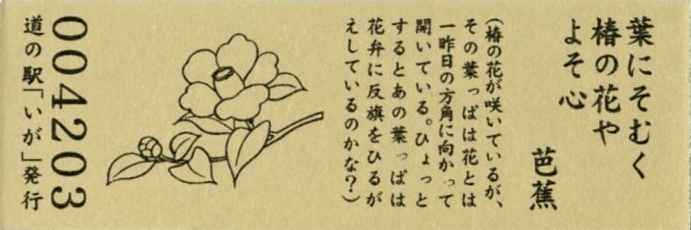 葉にそむく
椿の花や
よそ心
芭蕉
(椿の花が咲いているが、
その葉っぱは花とは
一昨日の方角に向かって
開いている。ひょっと
するとあの葉っぱは
花弁に反旗をひるが
えしているのかな？)
004203
道の駅「いが」発行